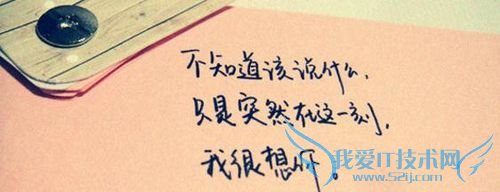 不知道该说什么，
只是突然在这一刻，
我很想你。
我爱IT技术网
www.52ij.com